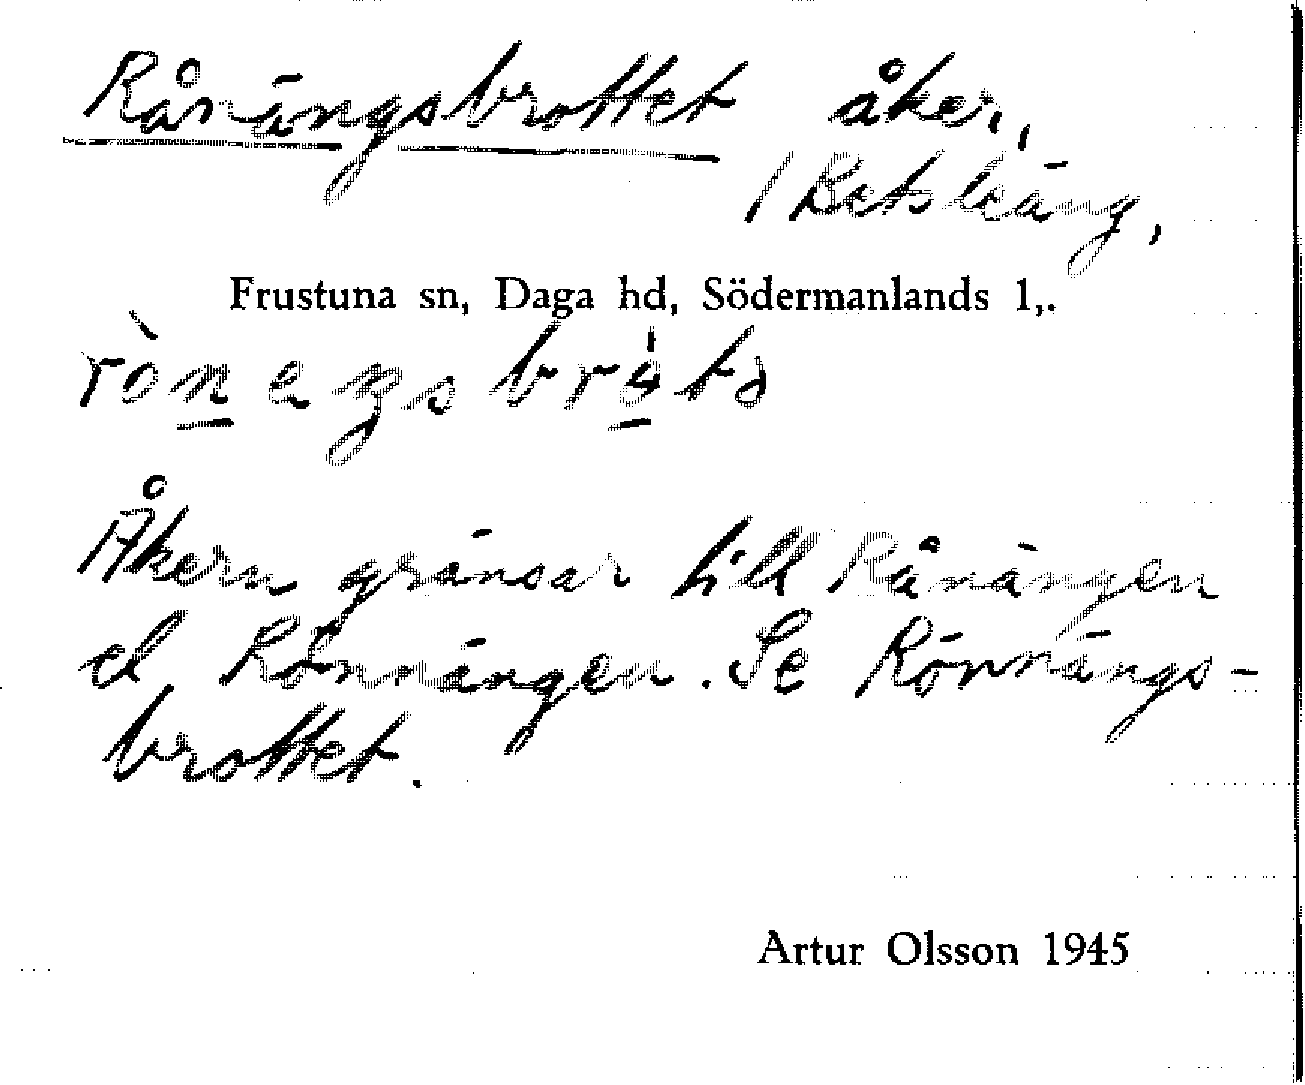 Rånängsbrottet åker,
Frustuna sn, Daga hd, Södermanlands l,.
Åkern gränsar till Rånängen
el Rönnängen. Se Rönnängs-
brottet.
Artur Olsson 1945